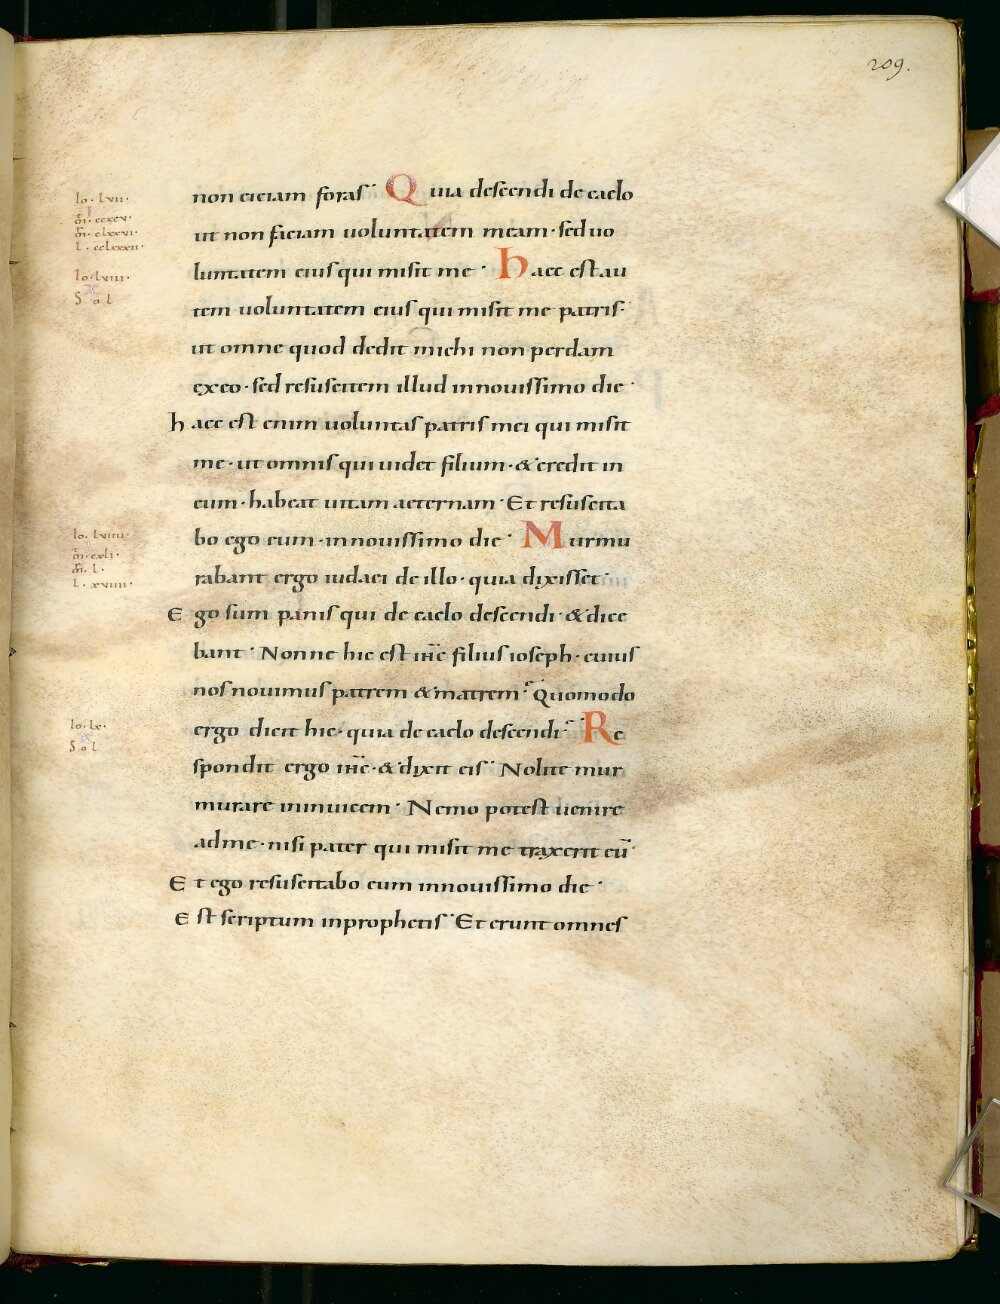 209.
non eiciam foras· Quia descendi de caelo
Io· lvii·
m̄· ccxcv·
m̄· clxxvi·
l· cclxxxii·
ut non faciam uoluntatem meam· sed uo
luntatem eius qui misit me· haec est au
Io· lviii·
Sol
tem uoluntatem eius qui misit me patris·
ut omne quod dedit michi non perdam
ex eo· sed resuscitem illud innouissimo die·
haec est enim uoluntas patris mei qui misit
me· ut omnis qui uidet filium· & credit in
eum· habeat uitam aeternam· Et resuscita
bo ego eum· innouissimo die· Murmu
Io· lviiii·
m̄· cxli·
m̄· l·
l· xviiii·
rabant ergo iudaei de illo· quia dixisset·
Ego sum panis qui de caelo descendi· & dice
bant· Nonne hic est ih̄c filius ioseph· cuius
nos nouimus patrem & matrem· Quomodo
ergo dicit hic· quia de caelo descendi· Re
Io· lx·
Sol
spondit ergo ih̄c· & dixit eis· Nolite mur
murare inuuicem· Nemo potest uenire
adme· nisi pater qui misit me traxerit eū·
Et ego resuscitabo eum innouissimo die·
Est scriptum inprophetis· Et erunt omnes